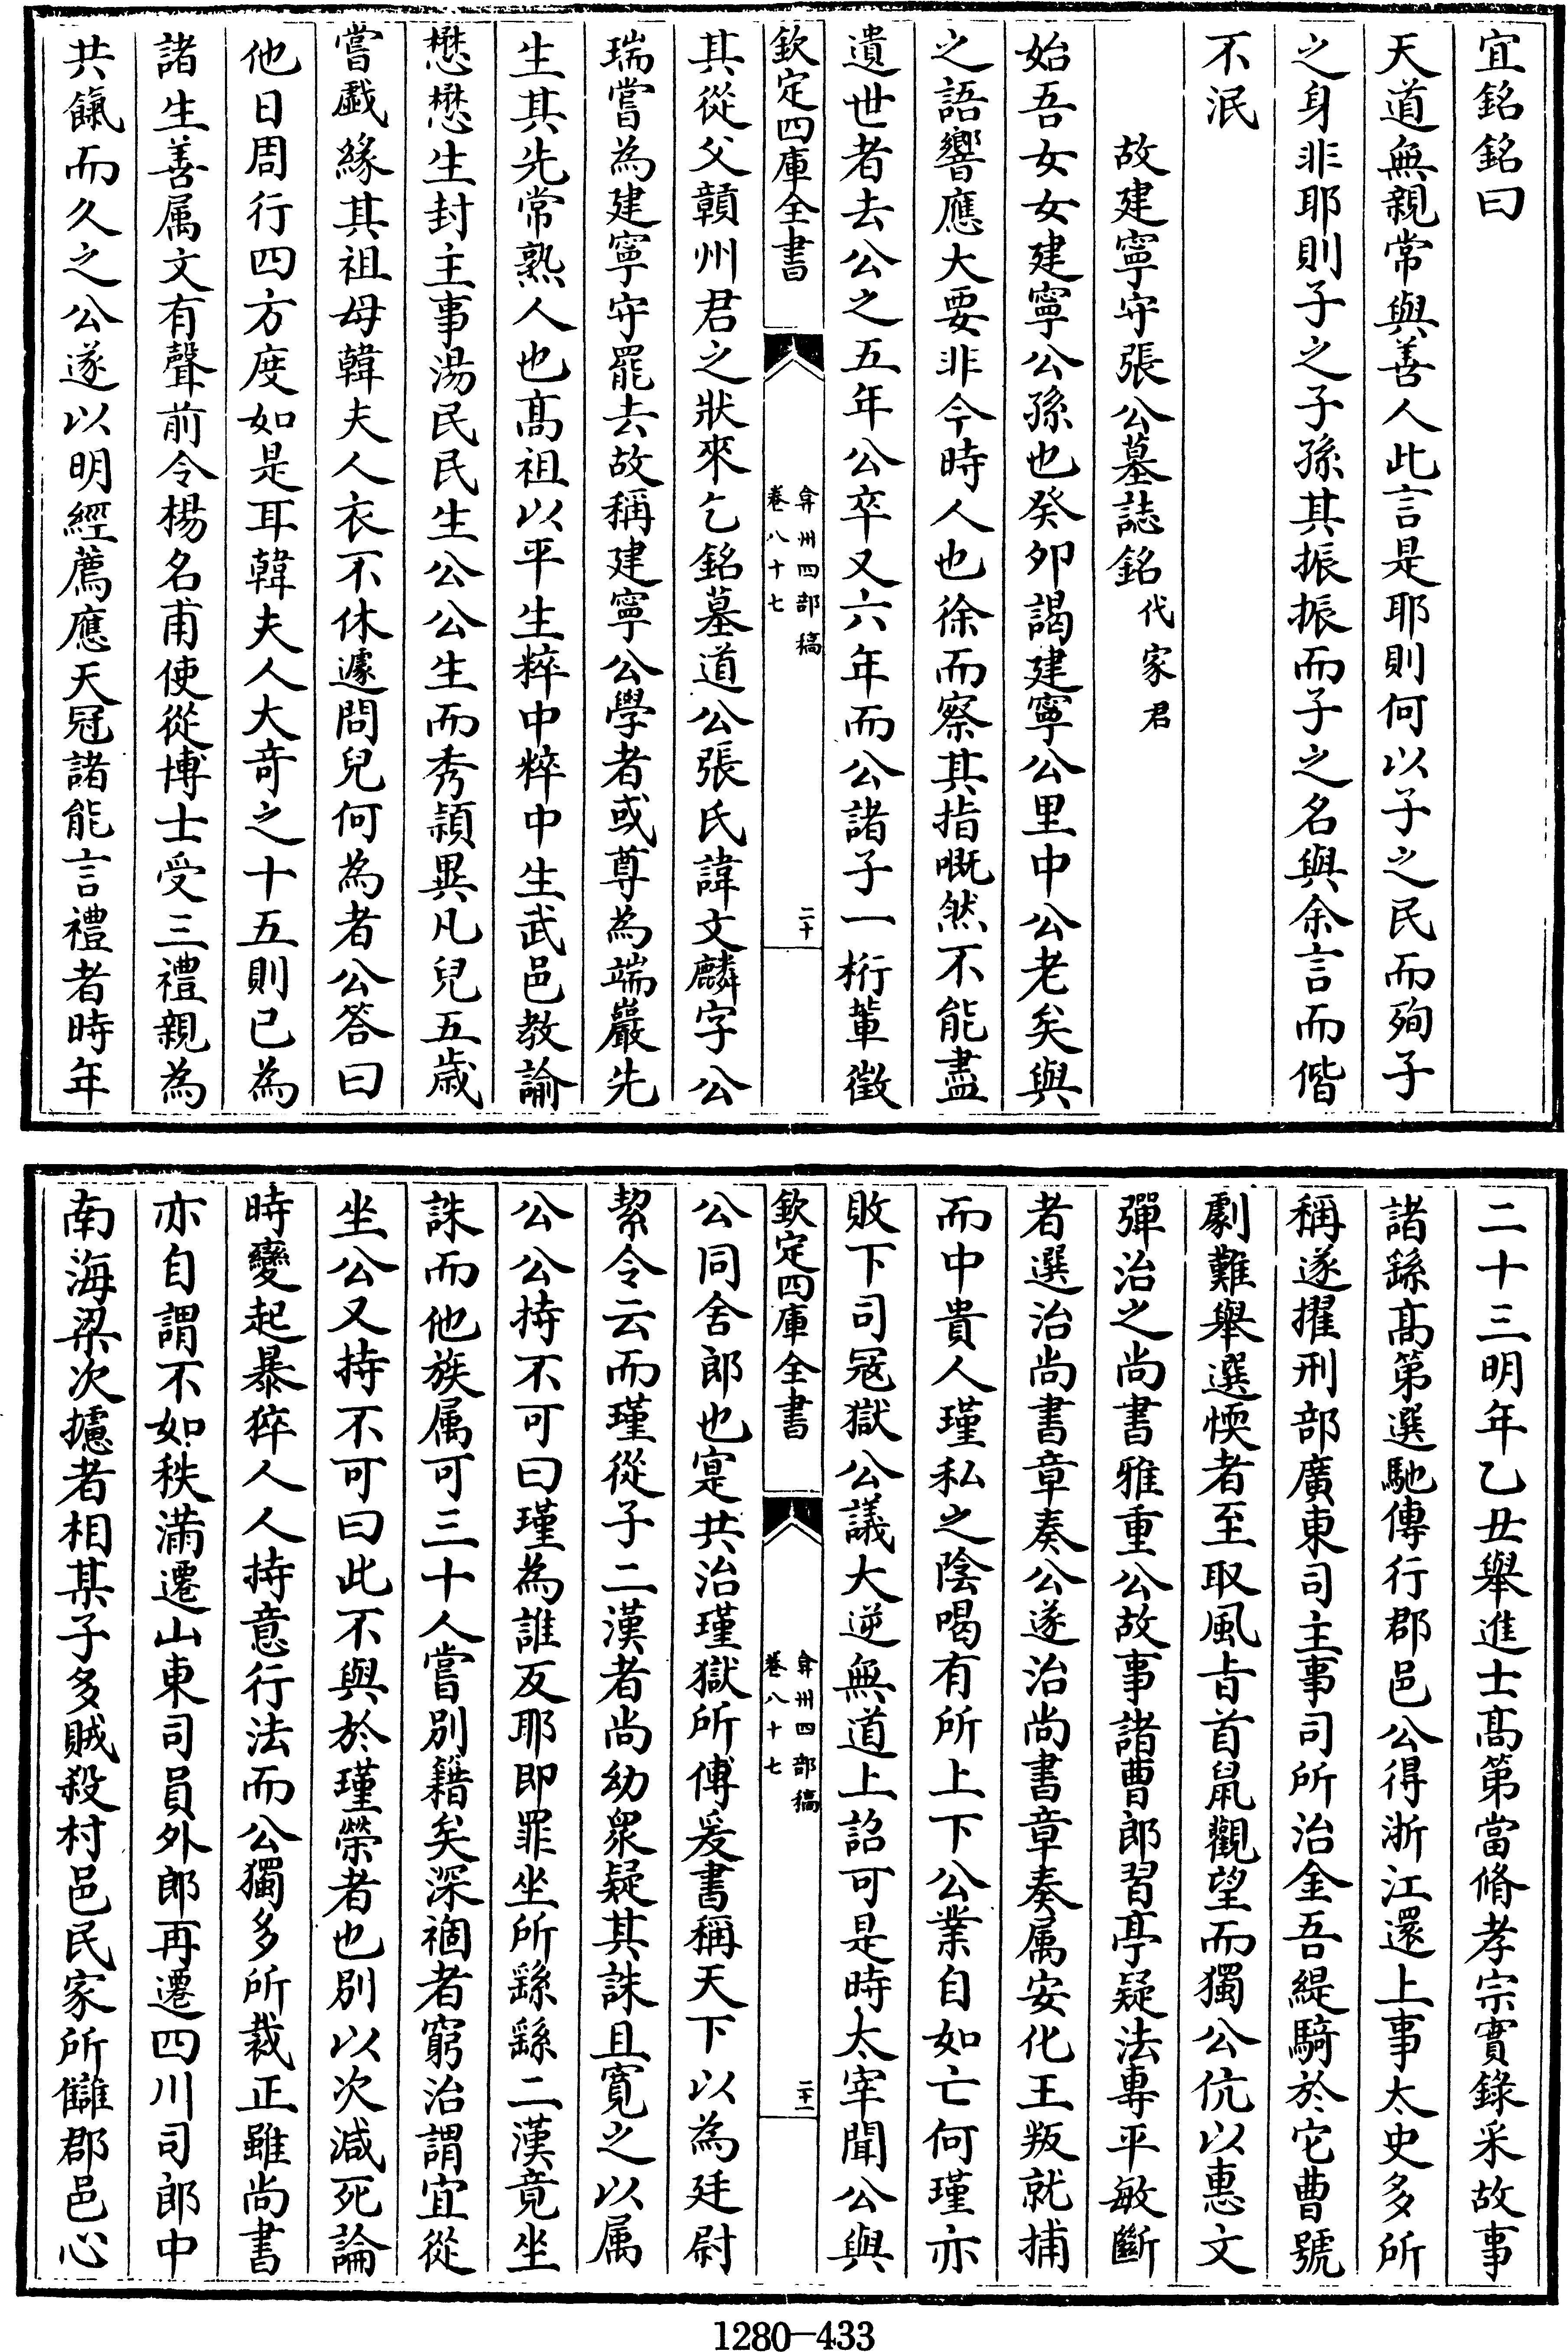 宜銘銘曰
天道無親常與善人此言是耶則何以子之民而殉子
之身非耶則子之子孫其振振而子之名與余言而偕
不泯
故建寧守張公墓誌銘代家君
始吾女女建寧公孫也癸夘謁建寧公里中公老矣與
之語響應大要非今時人也徐而察其指嘅然不能盡
遺世者去公之五年公卒又六年而公諸子一桁軰徵
欽定四庫全書
弇州四部稿
卷八十七
二十
其從父贛州君之狀來乞銘墓道公張氏諱文麟字公
瑞嘗為建寧守罷去故稱建寧公學者或尊為端巖先
生其先常熟人也髙祖以平生粹中粹中生武邑教諭
懋懋生封主事湯民民生公公生而秀頴異凡兒五歲
嘗戲緣其祖母韓夫人衣不休遽問兒何為者公答曰
他日周行四方度如是耳韓夫人大竒之十五則已為
諸生善属文有聲前令楊名甫使從博士受三禮親為
共餼而久之公遂以明經薦應天冠諸能言禮者時年
二十三明年乙丑舉進士髙第當脩孝宗實錄采故事
諸繇髙第選馳傳行郡邑公得浙江還上事太史多所
稱遂擢刑部廣東司主事司所治金吾緹騎於它曹號
劇難舉選愞者至取風㫖首鼠觀望而獨公伉以惠文
彈治之尚書雅重公故事諸曹郎習亭疑法專平敏斷
者選治尚書章奏公遂治尚書章奏属安化王叛就捕
而中貴人瑾私之陰喝有所上下公業自如亡何瑾亦
敗下司冦獄公議大逆無道上詔可是時太宰聞公與
欽定四庫全書
弇州四部稿
卷八十七
二十一
公同舍郎也寔共治瑾獄所傅爰書稱天下以為廷尉
絜令云而瑾從子二漢者尚幼衆疑其誅且寛之以属
公公持不可曰瑾為誰反耶即罪坐所繇繇二漢竟坐
誅而他族属可三十人嘗別籍矣深禍者窮治謂宜從
坐公又持不可曰此不與於瑾榮者也別以次減死論
時變起暴猝人人持意行法而公獨多所裁正雖尚書
亦自謂不如秩滿遷山東司員外郎再遷四川司郎中
南海梁次攄者相某子多賊殺村邑民家所讎郡邑心